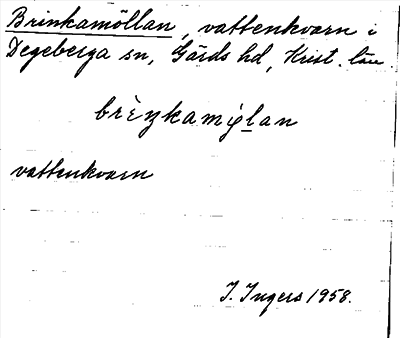 Brinkamöllan, vattenkvarn i
Degeberga sn, Gärds hd, Krist. län.
brìŋkamỳlan
vattenkvarn
I. Ingers 1958.